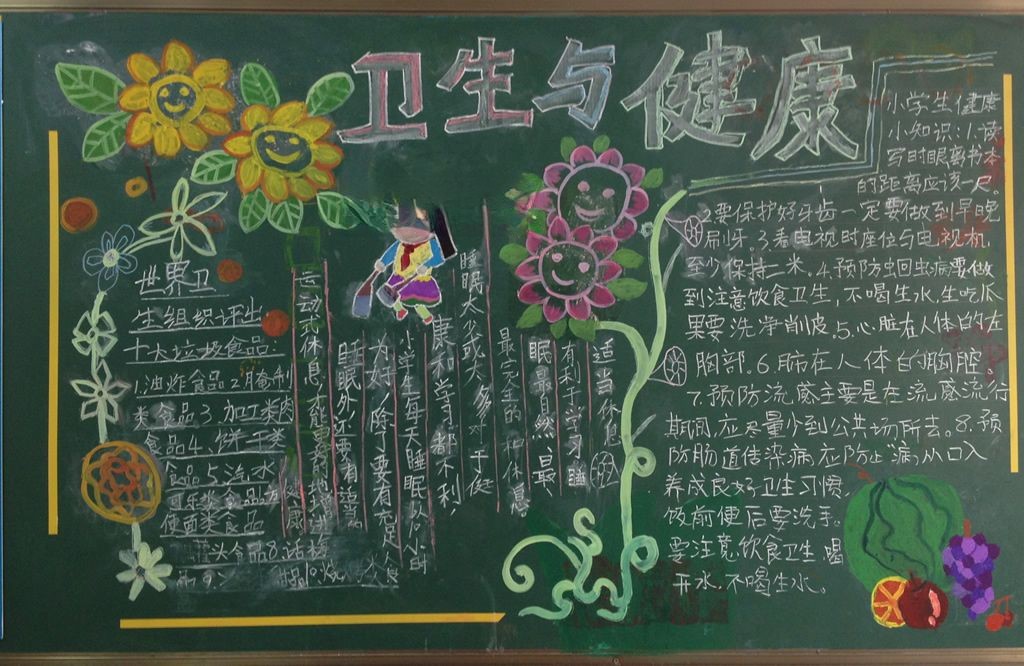 卫生与健康
小学生健康
小知识:1.读
写时眼离书本
的距离应该一尺。
2要保护好牙齿一定要做到早晚
刷牙。3看电视时座位与电视机
至少保持二米。4.预防蛔虫病要做
到注意饮食卫生,不喝生水,生吃瓜
果要洗净削皮。5.心脏在人体的左
胸部。6.肺在人体的胸腔。
7.预防流感主要是在流感流行
期间,应尽量少到公共场所去。8.预
防肠道传染病应防止"病从口入
养成良好卫生习惯,
饭前便后要洗手。
要注意饮食卫生喝
开水,不喝生水。
适当休息
有利于学习睡
眠最自然、最、
最完全的一种休息
睡眠太少或太多对于健
康和学习都不利,
小学生每天睡眠以八小时
为好,除了要有充足
睡眠外还要有适当
运动休息,才能
世界卫
生组织评出
十大垃圾食品
1.油炸食品2腌制
类食品3加工类肉
食品4.饼干类
食品5汽水
可乐类食品6方
便面类食品
罐头食品8.话梅